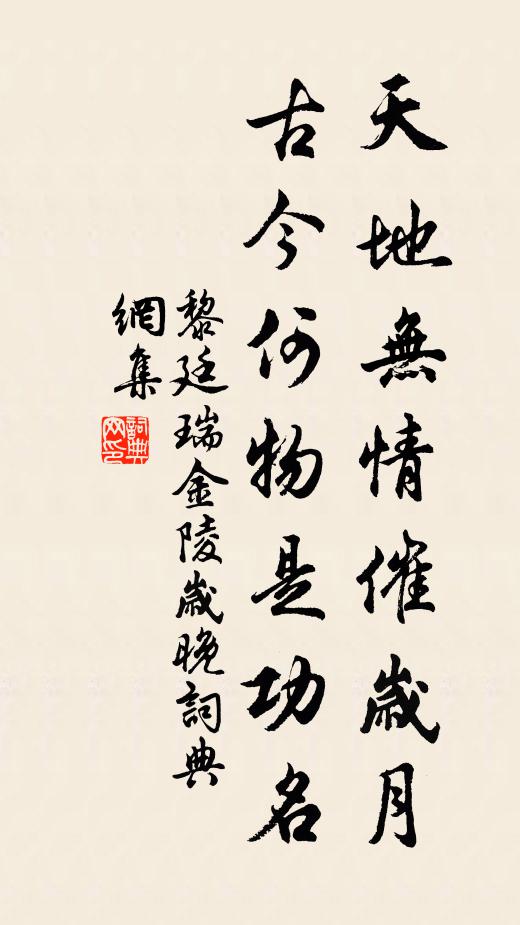 天地無情催歲月
古今何物是功名
黎廷瑞金陵歲晚詞典
網集
詞典
网印